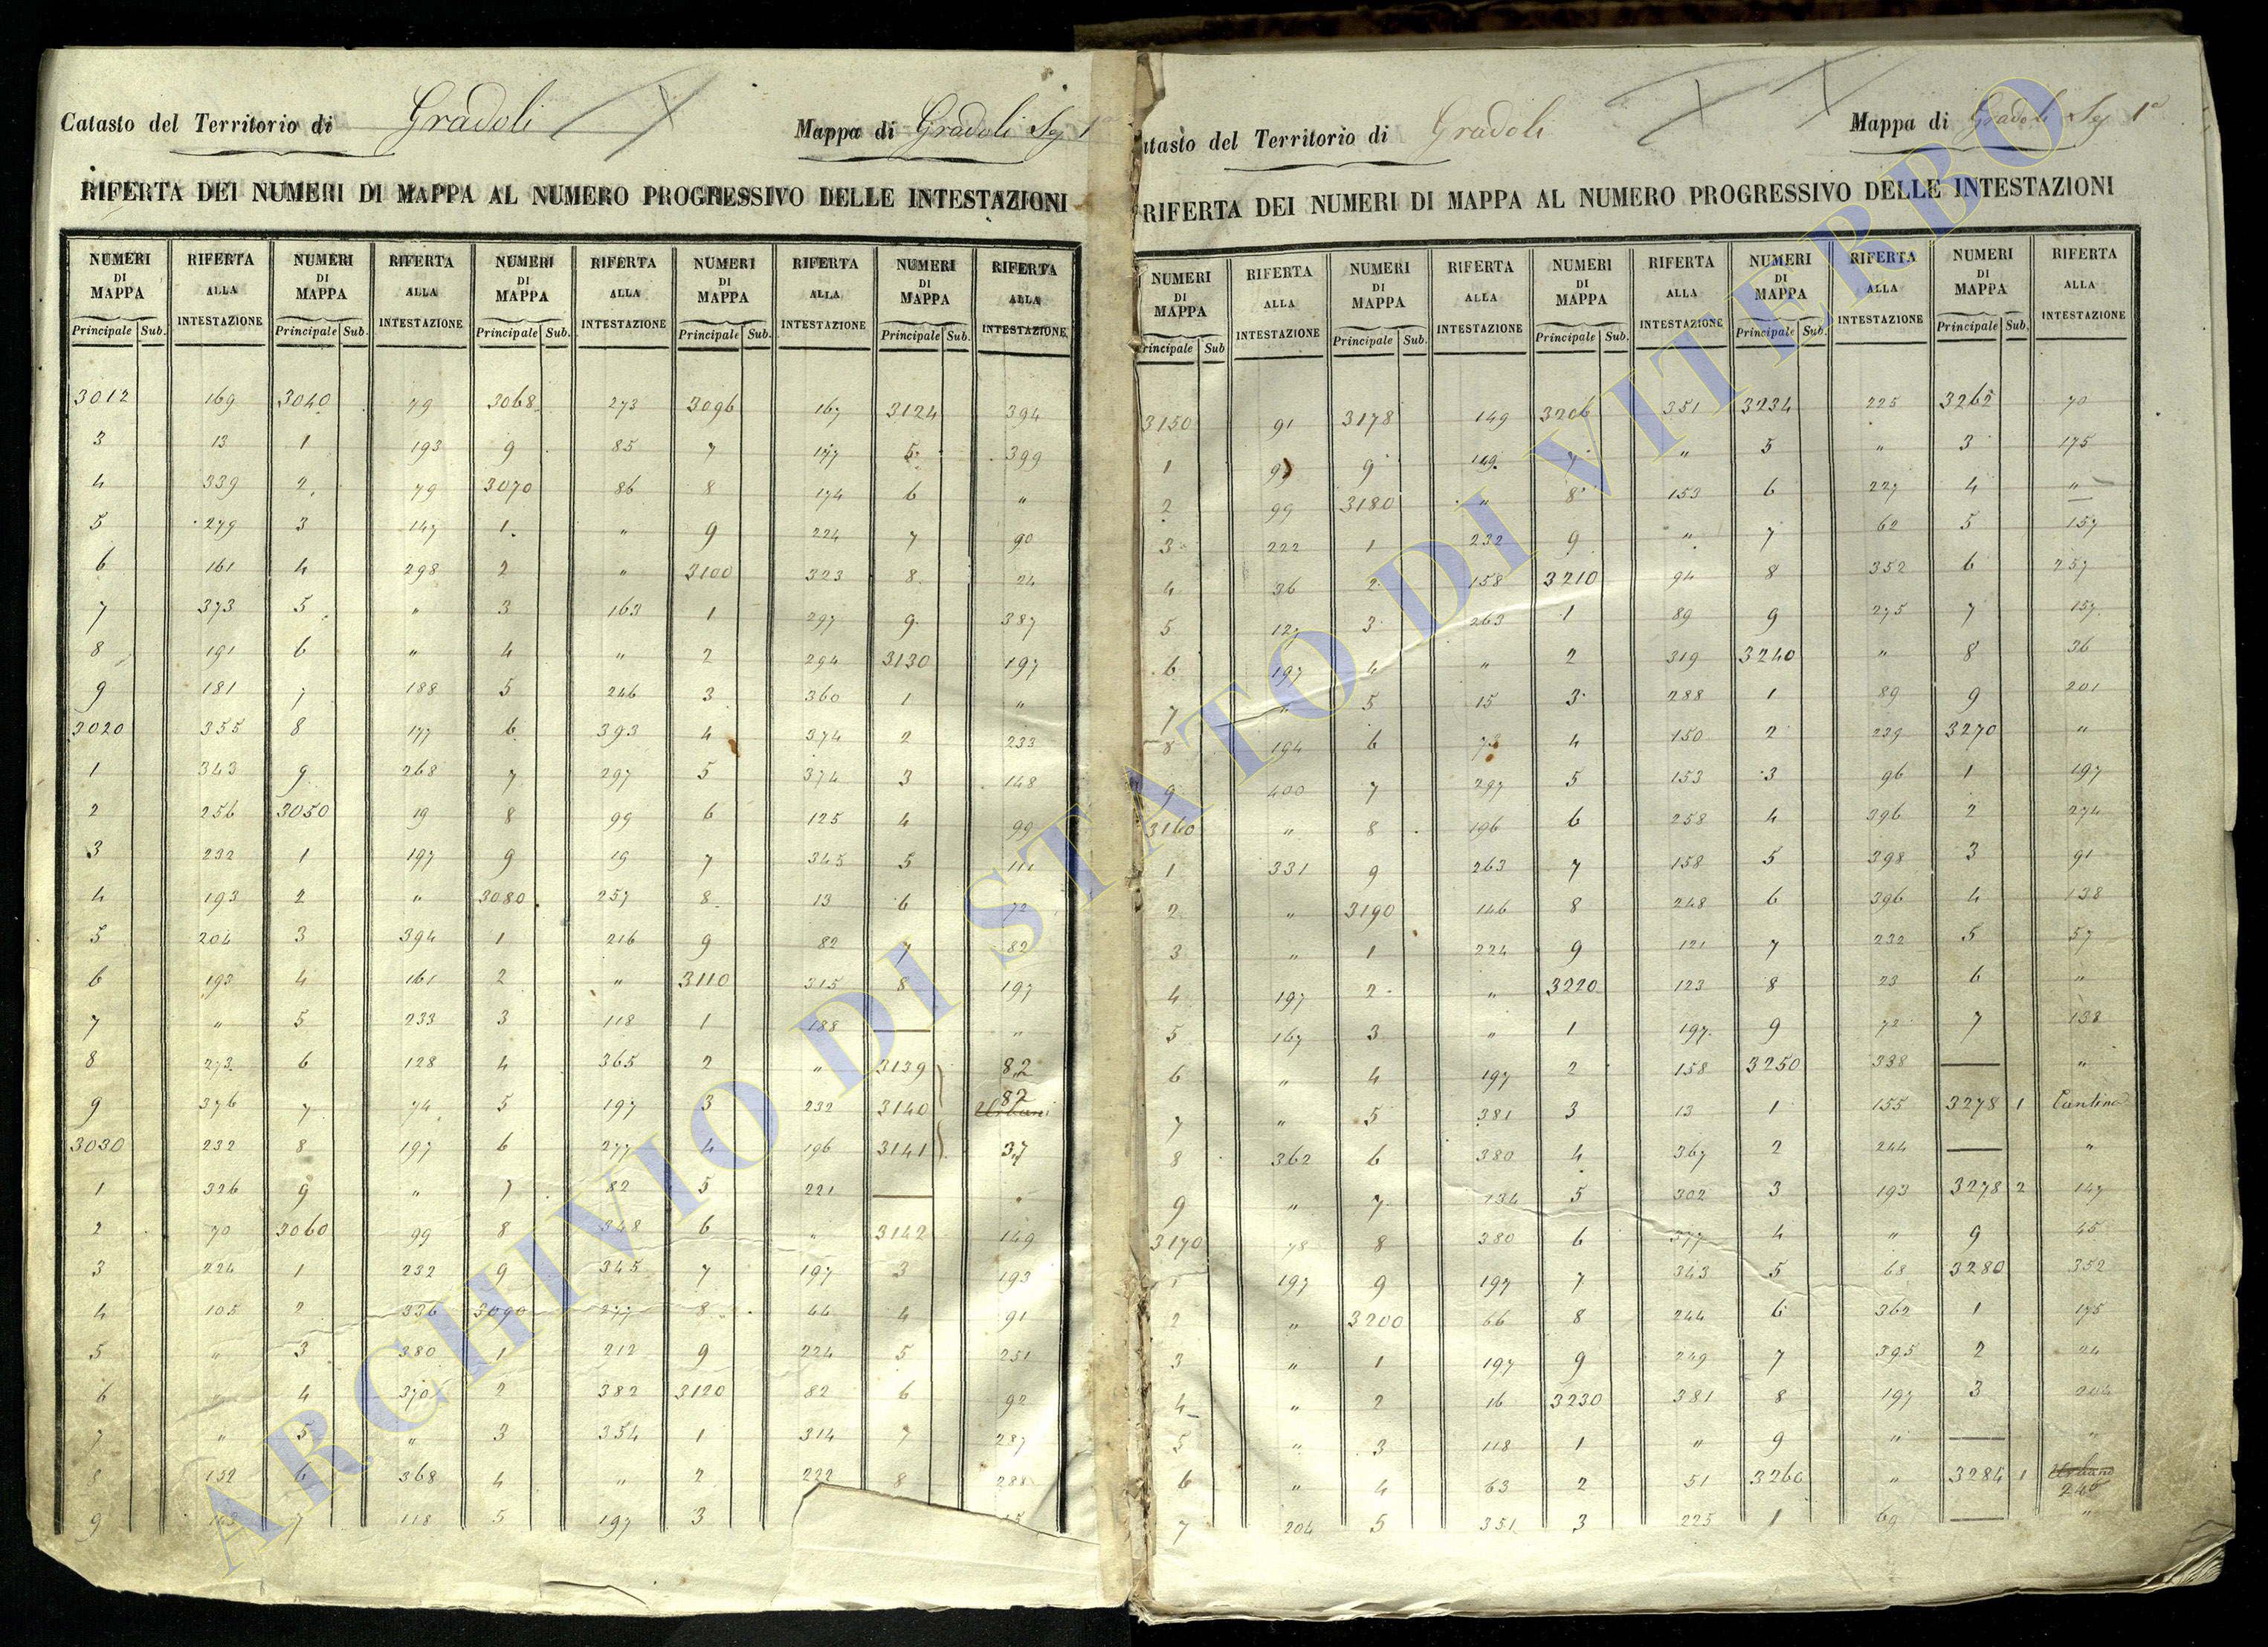 Catasto del Territorio di Gradoli Mappa di Gradoli Seg 1ª
RIFERTA DEI NUMERI DI MAPPA AL NUMERO PROGRESSIVO DELLE INTESTAZIONI
NUMERI DI MAPPA RIFERTA ALLA INTESTAZIONE NUMERI DI MAPPA RIFERTA ALLA INTESTAZIONE NUMERI DI MAPPA RIFERTA ALLA INTESTAZIONE NUMERI DI MAPPA RIFERTA ALLA INTESTAZIONE NUMERI DI MAPPA RIFERTA ALLA INTESTAZIONE
Principale Sub. Principale Sub. Principale Sub. Principale Sub. Principale Sub.
3012 169 3040 79 3068 273 3096 167 3124 394
3 13 1 193 9 85 7 177 5 399
4 339 2 79 3070 86 8 174 6 "
5 279 3 147 1 " 9 224 7 90
6 161 4 298 2 " 3100 323 8 24
7 373 5 " 3 163 1 297 9 387
8 191 6 " 4 " 2 294 3130 197
9 181 7 188 5 246 3 360 1 "
3020 355 8 177 6 393 4 374 2 233
1 343 9 268 7 297 5 374 3 148
2 256 3050 19 8 99 6 125 4 99
3 232 1 197 9 19 7 345 5 111
4 193 2 " 3080 257 8 13 6 72
5 204 3 394 1 216 9 82 7 82
6 193 4 161 2 " 3110 315 8 197
7 " 5 233 3 118 1 188 — "
8 273 6 128 4 365 2 " 3139 82
9 376 7 74 5 197 3 232 3140 82
3030 232 8 197 6 277 4 196 3141 37
1 326 9 " 7 82 5 221 — "
2 70 3060 99 8 348 6 " 3142 149
3 224 1 232 9 345 7 197 3 193
4 105 2 336 3090 277 8 44 4 91
5 " 3 380 1 212 9 224 5 251
6 " 4 370 2 382 3120 82 6 92
7 " 5 " 3 354 1 314 7 287
8 152 6 368 4 " 2 222 8 288
9 7 118 5 197 3
atasto del Territorio di Gradoli Mappa di Gradoli Seg 1ª
RIFERTA DEI NUMERI DI MAPPA AL NUMERO PROGRESSIVO DELLE INTESTAZIONI
NUMERI DI MAPPA RIFERTA ALLA INTESTAZIONE NUMERI DI MAPPA RIFERTA ALLA INTESTAZIONE NUMERI DI MAPPA RIFERTA ALLA INTESTAZIONE NUMERI DI MAPPA RIFERTA ALLA INTESTAZIONE NUMERI DI MAPPA RIFERTA ALLA INTESTAZIONE
rincipale Sub Principale Sub. Principale Sub. Principale Sub. Principale Sub.
3150 91 3178 149 3206 351 3234 225 3262 70
1 97 9 149 7 " 5 " 3 175
2 99 3180 " 8 153 6 227 4 "
3 222 1 232 9 " 7 62 5 157
4 36 2 158 3210 94 8 352 6 257
5 127 3 263 1 89 9 275 7 157
6 197 4 " 2 319 3240 " 8 36
7 " 5 15 3 288 1 89 9 201
8 194 6 73 4 150 2 239 3270 "
9 400 7 297 5 153 3 96 1 197
3160 " 8 196 6 258 4 396 2 274
1 331 9 263 7 158 5 398 3 91
2 " 3190 146 8 248 6 396 4 138
3 " 1 224 9 121 7 232 5 57
4 197 2 " 3220 123 8 23 6 "
5 167 3 " 1 197 9 72 7 138
6 " 4 197 2 158 3250 338 — "
7 " 5 381 3 13 1 155 3278 1 Cantina
8 362 6 380 4 367 2 244 — "
9 " 7 134 5 302 3 193 3278 2 147
3170 78 8 380 6 377 4 " 9 45
1 197 9 197 7 343 5 68 3280 352
2 " 3200 66 8 244 6 362 1 175
3 " 1 197 9 249 7 395 2 24
4 " 2 16 3230 381 8 197 3 204
5 " 3 118 1 " 9 " — "
6 " 4 63 2 51 3260 " 3284 1 Urbano 246
7 204 5 351 3 225 1 69 — "
ARCHIVIO DI STATO DI VITERBO